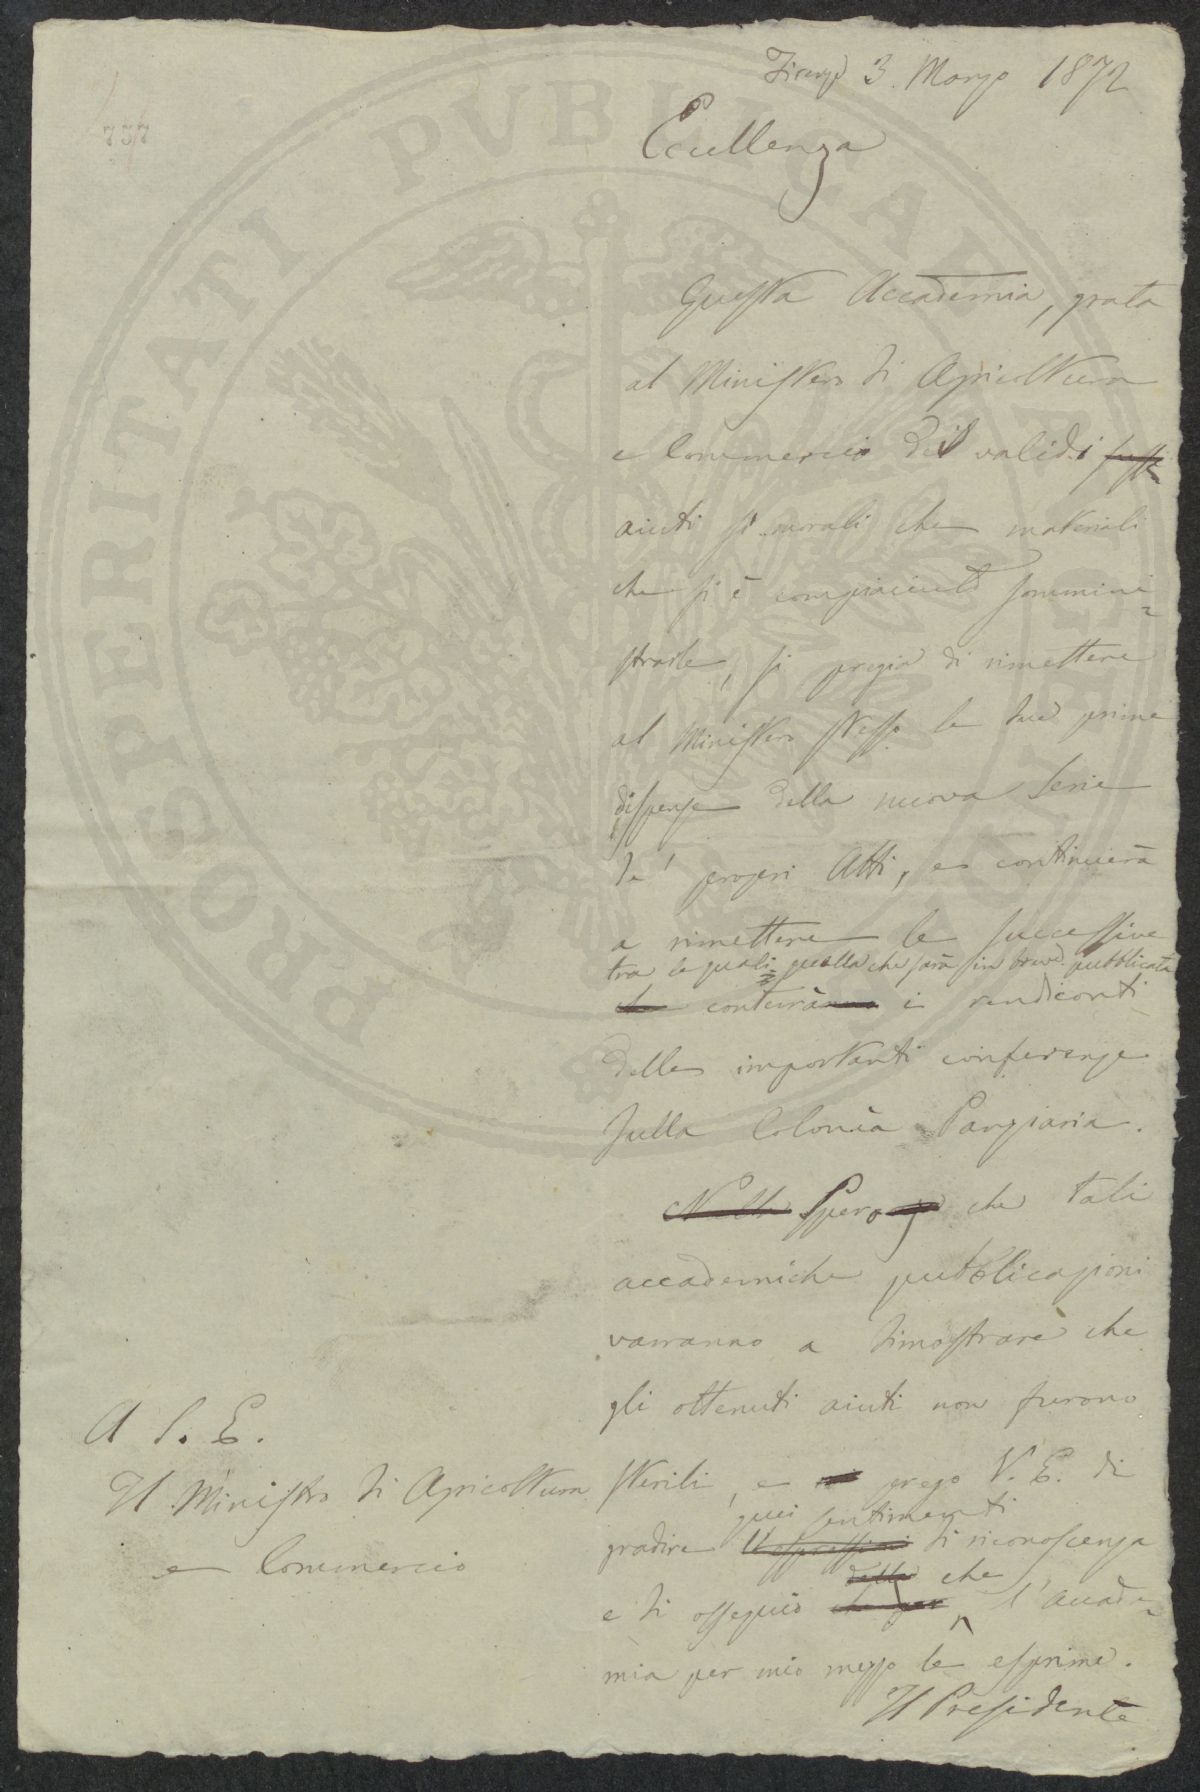 Firenze 3. Marzo 1872
757
Eccellenza
Questa Accademia, grata
al Ministero di Agricoltura
e Commercio dei validi
aiuti sì morali che materiali
che si è compiaciuto sommini=
strarle, si pregia di rimettere
al Ministero stesso le due prime
dispense della nuova Serie
de' propri Atti, e continuerà
a rimettere le successive
tra le quali quella che sarà in breve pubblicata
conterà i rendiconti
delle importanti conferenze
sulla Colonìa Parziaria.
Nella Spero che tali
accademiche pubblicazioni
varranno a dimostrare che
gli ottenuti aiuti non furono
sterili, e prego V. E. di
quei sentimenti
gradire l'espressioni di riconoscenza
della che
e di ossequio che per l'Accade=
mia per mio mezzo le esprime.
Il Presidente
A S. E.
Il Ministro di Agricoltura
e Commercio
PROSPERITATI PVBLICAE AVGENDAE